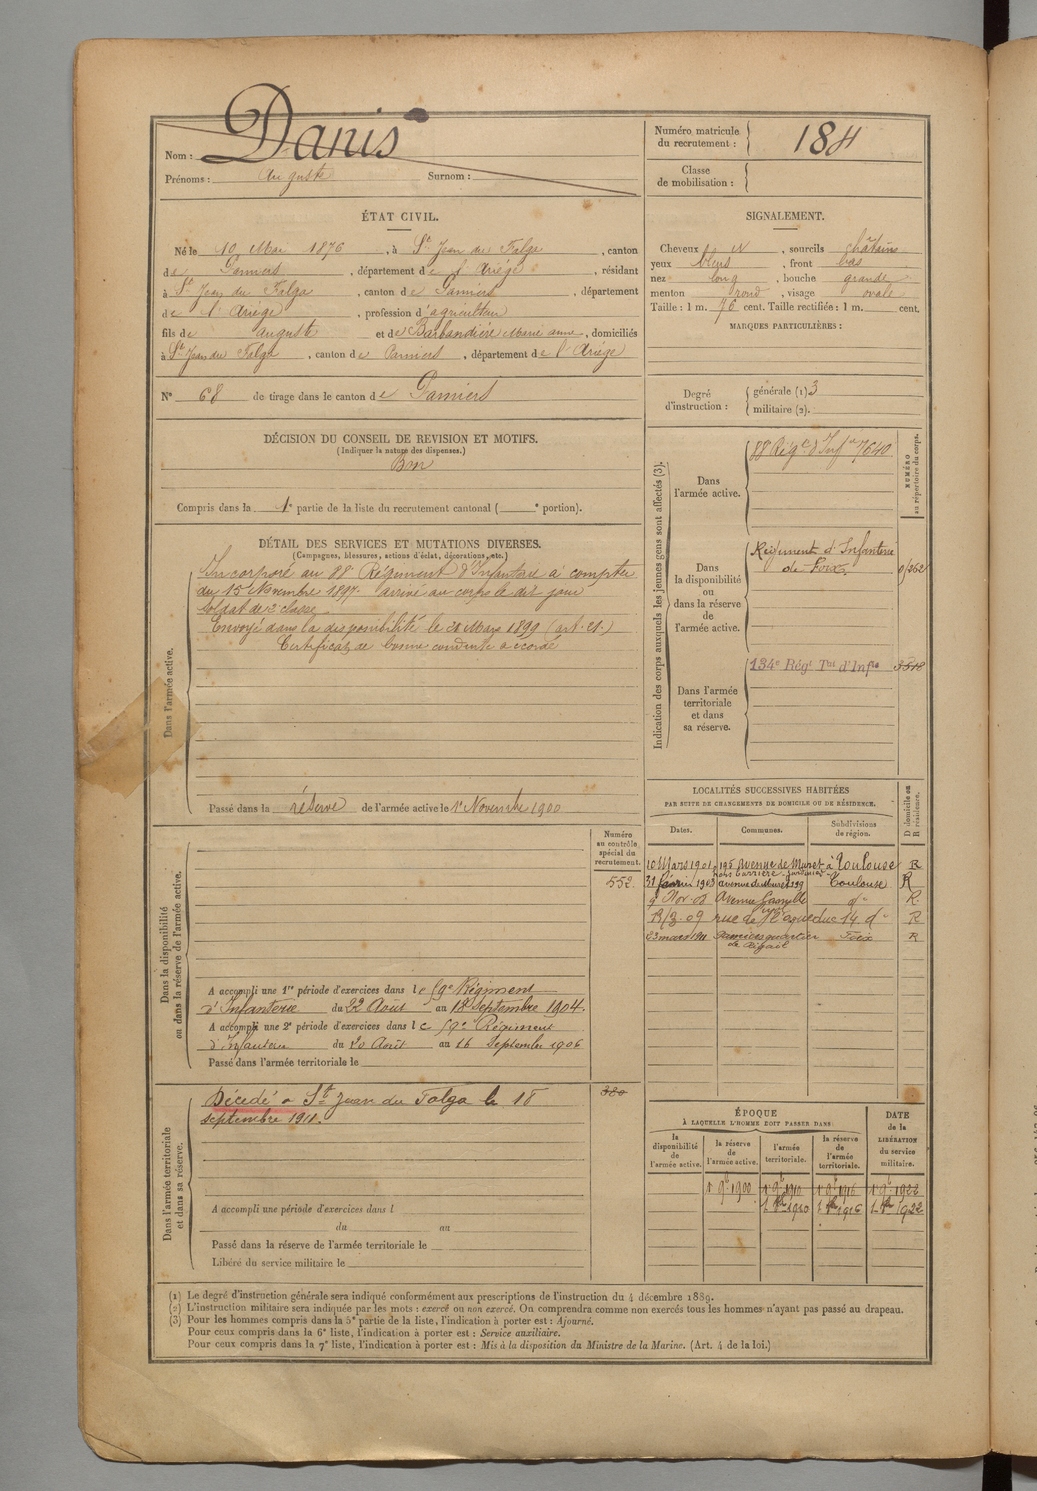 Nom : Danis
Prénoms : Auguste Surnom :
Numéro matricule du recrutement : 184
Classe de mobilisation :
ÉTAT CIVIL.
Né le 10 Mai 1876, à St Jean du Falga, canton
de Pamiers, département de l'Ariége, résidant
à St Jean du Falga, canton de Pamiers, département
de l'Ariége, profession d'agriculteur
fils de Auguste et de Barbandière Marie anne, domiciliés
à St Jean du Falga, canton de Pamiers, département de l'Ariége
N° 68 de tirage dans le canton de Pamiers
SIGNALEMENT.
Cheveux et sourcils châtains
yeux bleus, front bas
nez long, bouche grande
menton rond, visage ovale
Taille : 1 m. 76 cent. Taille rectifiée : 1 m. cent.
MARQUES PARTICULIÈRES :
Degré d'instruction : générale (1) 3
militaire (2).
DÉCISION DU CONSEIL DE REVISION ET MOTIFS.
(Indiquer la nature des dispenses.)
Bon
Compris dans la 1e partie de la liste du recrutement cantonal ( e portion).
DÉTAIL DES SERVICES ET MUTATIONS DIVERSES.
(Campagnes, blessures, actions d'éclat, décorations, etc.)
Dans l'armée active.
Incorporé au 88e Régiment d'Infanterie à compter
du 15 Novembre 1897. arrivé au corps le dit jour
soldat de 2e classe
Envoyé dans la disponibilité le Mars 1899 (art. 21.)
Certificat de bonne conduite accordé
Passé dans la réserve de l'armée active le 1er Novembre 1900
Indication des corps auxquels les jeunes gens sont affectés (3).
NUMÉRO au répertoire du corps.
Dans l'armée active.
88 Régt d'Infie 7640
Dans la disponibilité ou dans la réserve de l'armée active.
Régiment d'Infanterie
de Foix. 0/362
Dans l'armée territoriale et dans sa réserve.
134e Régt Tal d'Infie 3518
LOCALITÉS SUCCESSIVES HABITÉES
PAR SUITE DE CHANGEMENTS DE DOMICILE OU DE RÉSIDENCE.
D domicile ou R résidence.
Dates. Communes. Subdivisions de région.
10 Mars 1901 195 Avenue de Muret à Toulouse R
31 1903 avenue de Muret 199 Toulouse R
9 Nov. 08 Avenue d° R.
13/3.09 rue de 14 d° R
23 mars 1911 Pamiers quartier Foix R
Dans la disponibilité ou dans la réserve de l'armée active.
Numéro au contrôle spécial du recrutement.
552
A accompli une 1re période d'exercices dans le 59e Régiment
d'Infanterie du 22 Août au 18 Septembre 1904.
A accompli une 2e période d'exercices dans le 59e Régiment
d'Infanterie du 20 Août au 16 Septembre 1906
Passé dans l'armée territoriale le
Dans l'armée territoriale et dans sa réserve.
Décédé à St Jean du Falga le 18
septembre 1911.
380
A accompli une période d'exercices dans l
du au
Passé dans la réserve de l'armée territoriale le
Libéré du service militaire le
ÉPOQUE
À LAQUELLE L'HOMME DOIT PASSER DANS :
DATE de la LIBÉRATION du service militaire.
la disponibilité de l'armée active.
la réserve de l'armée active.
l'armée territoriale.
la réserve de l'armée territoriale.
1er 9b 1900 1er 9b 1910 1er 9b 1916 1er 9b 1922
1910 1916 1922
(1) Le degré d'instruction générale sera indiqué conformément aux prescriptions de l'instruction du 4 décembre 1889.
(2) L'instruction militaire sera indiquée par les mots : exercé ou non exercé. On comprendra comme non exercés tous les hommes n'ayant pas passé au drapeau.
(3) Pour les hommes compris dans la 5e partie de la liste, l'indication à porter est : Ajourné.
Pour ceux compris dans la 6e liste, l'indication à porter est : Service auxiliaire.
Pour ceux compris dans la 7e liste, l'indication à porter est : Mis à la disposition du Ministre de la Marine. (Art. 4 de la loi.)